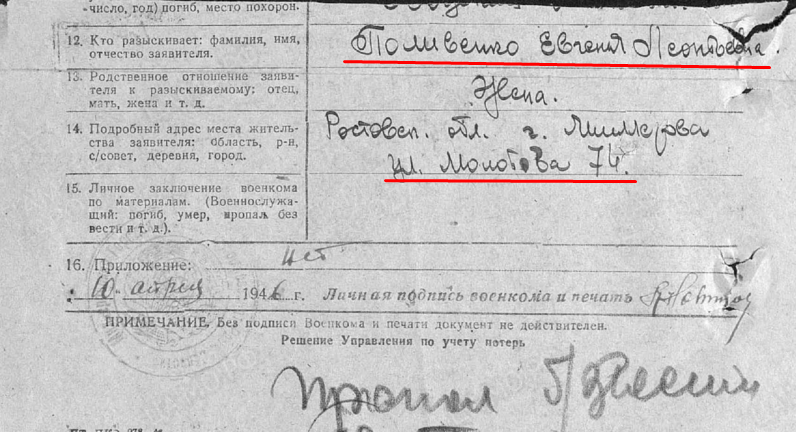 число, год) погиб, место похорон.
12. Кто разыскивает: фамилия, имя,
отчество заявителя.
Поливенко Евгения Леонтьевна.
13. Родственное отношение заяви-
теля к разыскиваемому: отец,
мать, жена и т. д.
Жена.
14. Подробный адрес места житель-
ства заявителя: область, р-н,
с/совет, деревня, город.
Ростовск. обл. г. Миллерова
ул. Молотова 74.
15. Личное заключение военкома
по материалам. (Военнослужа-
щий: погиб, умер, пропал без
вести и т. д.).
16. Приложение: нет
10 апреля 1946 г. Личная подпись военкома и печать
ПРИМЕЧАНИЕ. Без подписи Военкома и печати документ не действителен.
Решение Управления по учету потерь
пропал